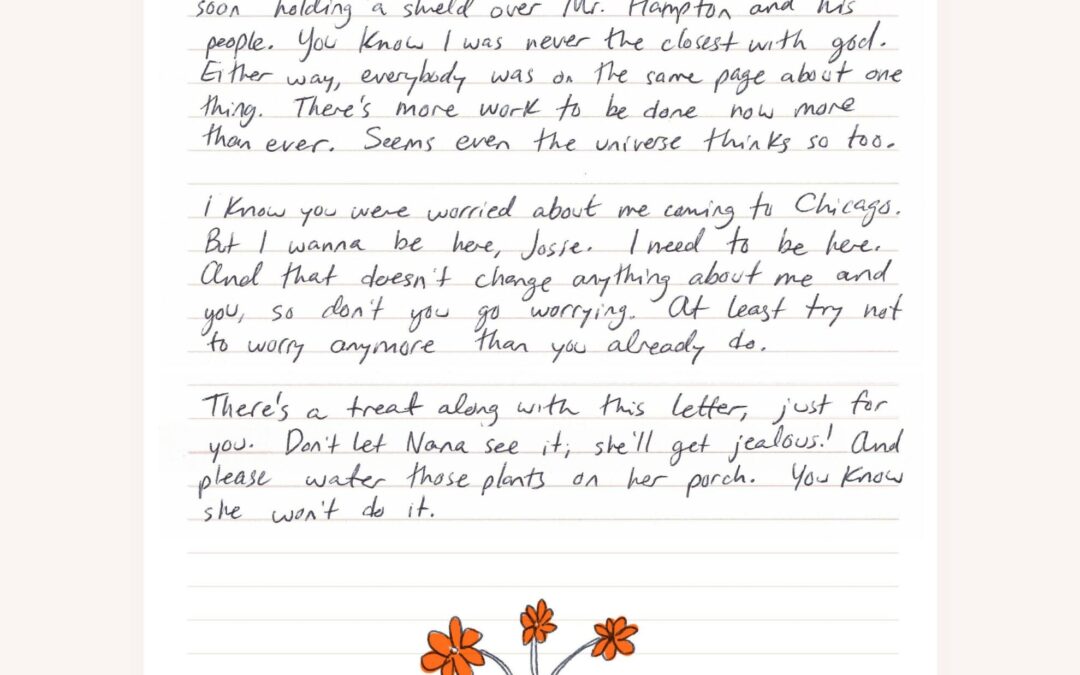 soon holding a shield over Mr. Hampton and his
people. You know I was never the closest with god.
Either way, everybody was on the same page about one
thing. There's more work to be done now more
than ever. Seems even the universe thinks so too.
I know you were worried about me coming to Chicago.
But I wanna be here, Josie. I need to be here.
And that doesn't change anything about me and
you, so don't you go worrying. At least try not
to worry anymore than you already do.
There's a treat along with this letter, just for
you. Don't let Nana see it; she'll get jealous! And
please water those plants on her porch. You know
she won't do it.